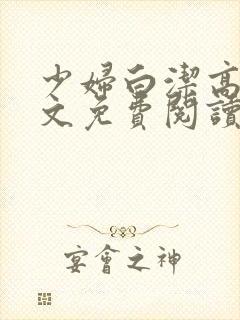 少婦白潔高
文免費閱讀
宴會之神